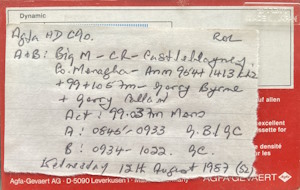 Dynamic
Agfa HD C90.
A+B: Big M - CR - Castleblayney,
Co. Monaghan - Ann 954+1413
+99+105.7m - Gerry Byrne
+ Gerry
Act: 99.03m Mono
A: 0845 - 0933 G.B/GC
B: 0934 - 1022 GC
Wednesday 12th August 1987 (52)
auf allen
excellent
cassette for
densité
for les
Agfa-Gevaert AG · D-5090 Leverkusen
AGFA-GEVAERT